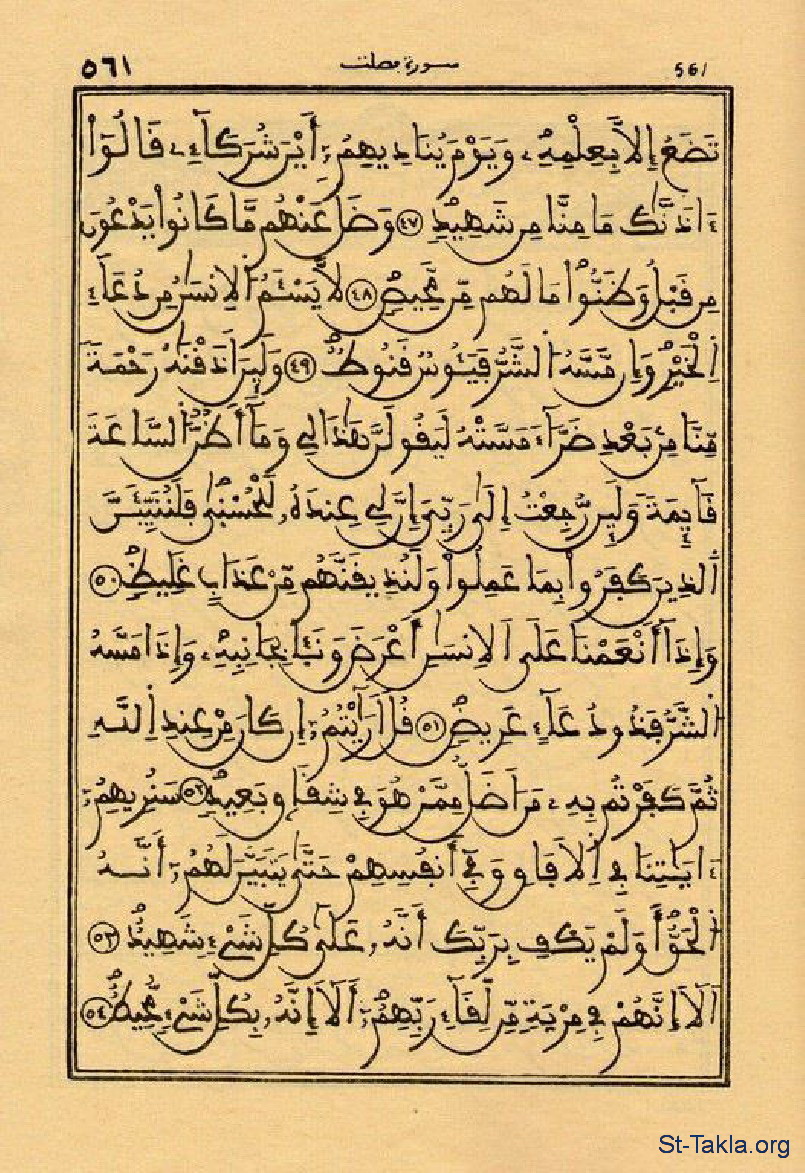 ٥٦١ سورة فصلت 561
تَضَعُ إِلَّا بِعِلْمِهِۦ وَيَوْمَ يُنَادِيهِمُۥٓ أَيْنَ شُرَكَآءِے قَالُوٓاْ
ءَاذَنَّٰكَ مَا مِنَّا مِن شَهِيدٍ ٤٧ وَضَلَّ عَنْهُم مَّا كَانُواْ يَدْعُونَ
مِن قَبْلُ وَظَنُّواْ مَا لَهُم مِّن مَّحِيصٍ ٤٨ لَّا يَسْـَٔمُ اُلِانسَٰنُ مِن دُعَآءِ
اِلْخَيْرِ وَإِن مَّسَّهُ اُلشَّرُّ فَيَـُٔوسٌ قَنُوطٌ ٤٩ وَلَئِنَ اَذَقْنَٰهُ رَحْمَةً
مِّنَّا مِنۢ بَعْدِ ضَرَّآءَ مَسَّتْهُ لَيَقُولَنَّ هَٰذَا لِے وَمَآ أَظُنُّ اُلسَّاعَةَ
قَآئِمَةً وَلَئِن رُّجِعْتُ إِلَىٰ رَبِّيَ إِنَّ لِے عِندَهُۥ لَلْحُسْنَىٰ فَلَنُنَبِّئَنَّ
اَلذِينَ كَفَرُواْ بِمَا عَمِلُواْ وَلَنُذِيقَنَّهُم مِّنْ عَذَابٍ غَلِيظٍ ٥٠
وَإِذَآ أَنْعَمْنَا عَلَى اَلِانسَٰنِ أَعْرَضَ وَنَـَٔا بِجَانِبِهِۦ وَإِذَا مَسَّهُ
اُلشَّرُّ فَذُو دُعَآءٍ عَرِيضٍ ٥١ قُلَ اَرَٰٓيْتُمُۥٓ إِن كَانَ مِنْ عِندِ اِللَّهِ
ثُمَّ كَفَرْتُم بِهِۦ مَنَ اَضَلُّ مِمَّنْ هُوَ فِے شِقَاقٍۢ بَعِيدٍ ٥٢ سَنُرِيهِمُۥٓ
ءَايَٰتِنَا فِے اِلَافَاقِ وَفِےٓ أَنفُسِهِمْ حَتَّىٰ يَتَبَيَّنَ لَهُمُۥٓ أَنَّهُ
اُلْحَقُّ أَوَلَمْ يَكْفِ بِرَبِّكَ أَنَّهُۥ عَلَىٰ كُلِّ شَےْءٍ شَهِيدٌ ٥٣
اَلَآ إِنَّهُمْ فِے مِرْيَةٍ مِّن لِّقَآءِ رَبِّهِمُۥٓ أَلَآ إِنَّهُۥ بِكُلِّ شَےْءٍ مُّحِيطٌ ٥٤
St-Takla.org